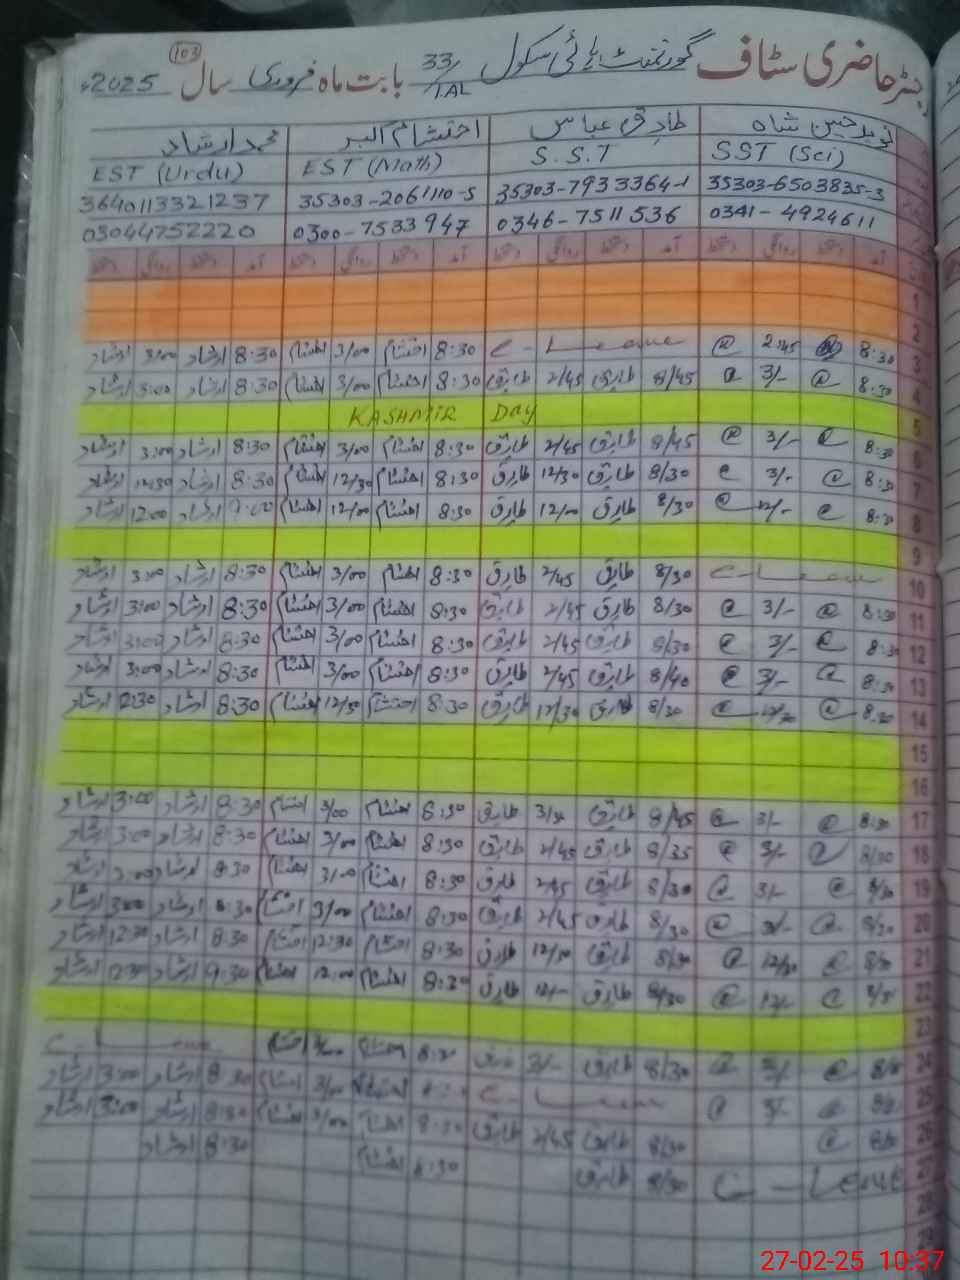 رجسٹر حاضری سٹاف گورنمنٹ ہائی سکول 33/TAL بابت ماہ فروری سال 2025ء
103
نوید حسین شاہ طارق عباس احتشام اکبر محمد ارشاد
SST (Sci) S.S.T EST (Math) EST (Urdu)
35303-6503835-3 35303-7933364-1 35303-2061110-5 3640113321237
0341-4924611 0346-7511536 0300-7533947 03044752220
آمد دستخط روانگی دستخط آمد دستخط روانگی دستخط آمد دستخط روانگی دستخط آمد دستخط روانگی دستخط
1
2
3 8:30 @ 2:45 @ C-Leave 8:30 احتشام 3/00 احتشام 8:30 ارشاد 3:00 ارشاد
4 8:30 @ 3/- @ 8/45 طارق 2/45 طارق 8:30 احتشام 3/00 احتشام 8:30 ارشاد 3:00 ارشاد
5 KASHMIR Day
6 8:30 @ 3/- @ 8/45 طارق 2/45 طارق 8:30 احتشام 3/00 احتشام 8:30 ارشاد 3:00 ارشاد
7 8:30 @ 3/- @ 8/30 طارق 12/30 طارق 8:30 احتشام 12/30 احتشام 8:30 ارشاد 12:30 ارشاد
8 8:30 @ 12/- @ 8/30 طارق 12/00 طارق 8:30 احتشام 12/00 احتشام 9:00 ارشاد 12:00 ارشاد
9
10 C-Leave 8/30 طارق 2/45 طارق 8:30 احتشام 3/00 احتشام 8:30 ارشاد 3:00 ارشاد
11 8:30 @ 3/- @ 8/30 طارق 2/45 طارق 8:30 احتشام 3/00 احتشام 8:30 ارشاد 3:00 ارشاد
12 8:30 @ 3/- @ 8/30 طارق 2/45 طارق 8:30 احتشام 3/00 احتشام 8:30 ارشاد 3:00 ارشاد
13 8:30 @ 3/- @ 8/40 طارق 2/45 طارق 8:30 احتشام 3/00 احتشام 8:30 ارشاد 3:00 ارشاد
14 8:30 @ 12/30 @ 8/30 طارق 12/30 طارق 8:30 احتشام 12/30 احتشام 8:30 ارشاد 12:30 ارشاد
15
16
17 8:30 @ 3/- @ 8/45 طارق طارق 8:30 احتشام 3/00 احتشام 8:30 ارشاد 3:00 ارشاد
18 8/30 @ 3/- @ 8/35 طارق 2/45 طارق 8:30 احتشام 3/00 احتشام 8:30 ارشاد 3:00 ارشاد
19 8/30 @ 3/- @ 8/30 طارق 2/45 طارق 8:30 احتشام 3/00 احتشام 8:30 ارشاد 3:00 ارشاد
20 8/30 @ 3/- @ 8/30 طارق 2/45 طارق 8:30 احتشام 3/00 احتشام 8:30 ارشاد 3:00 ارشاد
21 8/30 @ 12/30 @ 8/30 طارق 12/30 طارق 8:30 احتشام 12:30 احتشام 8:30 ارشاد 12:30 ارشاد
22 @ 12/- @ 8/30 طارق 12/- طارق 8:30 احتشام 12:00 احتشام ارشاد 12:30 ارشاد
23
24 @ 3/- @ 8/30 طارق 3/- طارق 8:30 احتشام احتشام C-Leave
25 @ 3/- @ C-Leave احتشام 3/00 احتشام 8:30 ارشاد 3:00 ارشاد
26 8/30 @ 8/30 طارق 2/45 طارق 8:30 احتشام 3/00 احتشام 8:30 ارشاد 3:00 ارشاد
27 C-Leave 8/30 طارق 8:30 احتشام 8:30 ارشاد
28
29
27-02-25 10:37